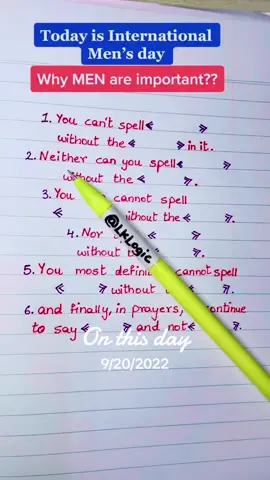 Today is International
Men's day
Why MEN are important??
1. You can't spell < >
without the < > in it.
2. Neither can you spell < >
without the < >.
3. You cannot spell
< > without the < >.
4. Nor
without
5. You most definitely cannot spell
< > without < >.
6. and finally, in prayers, continue
to say < > and not < >.
@LkLogic
On this day
9/20/2022